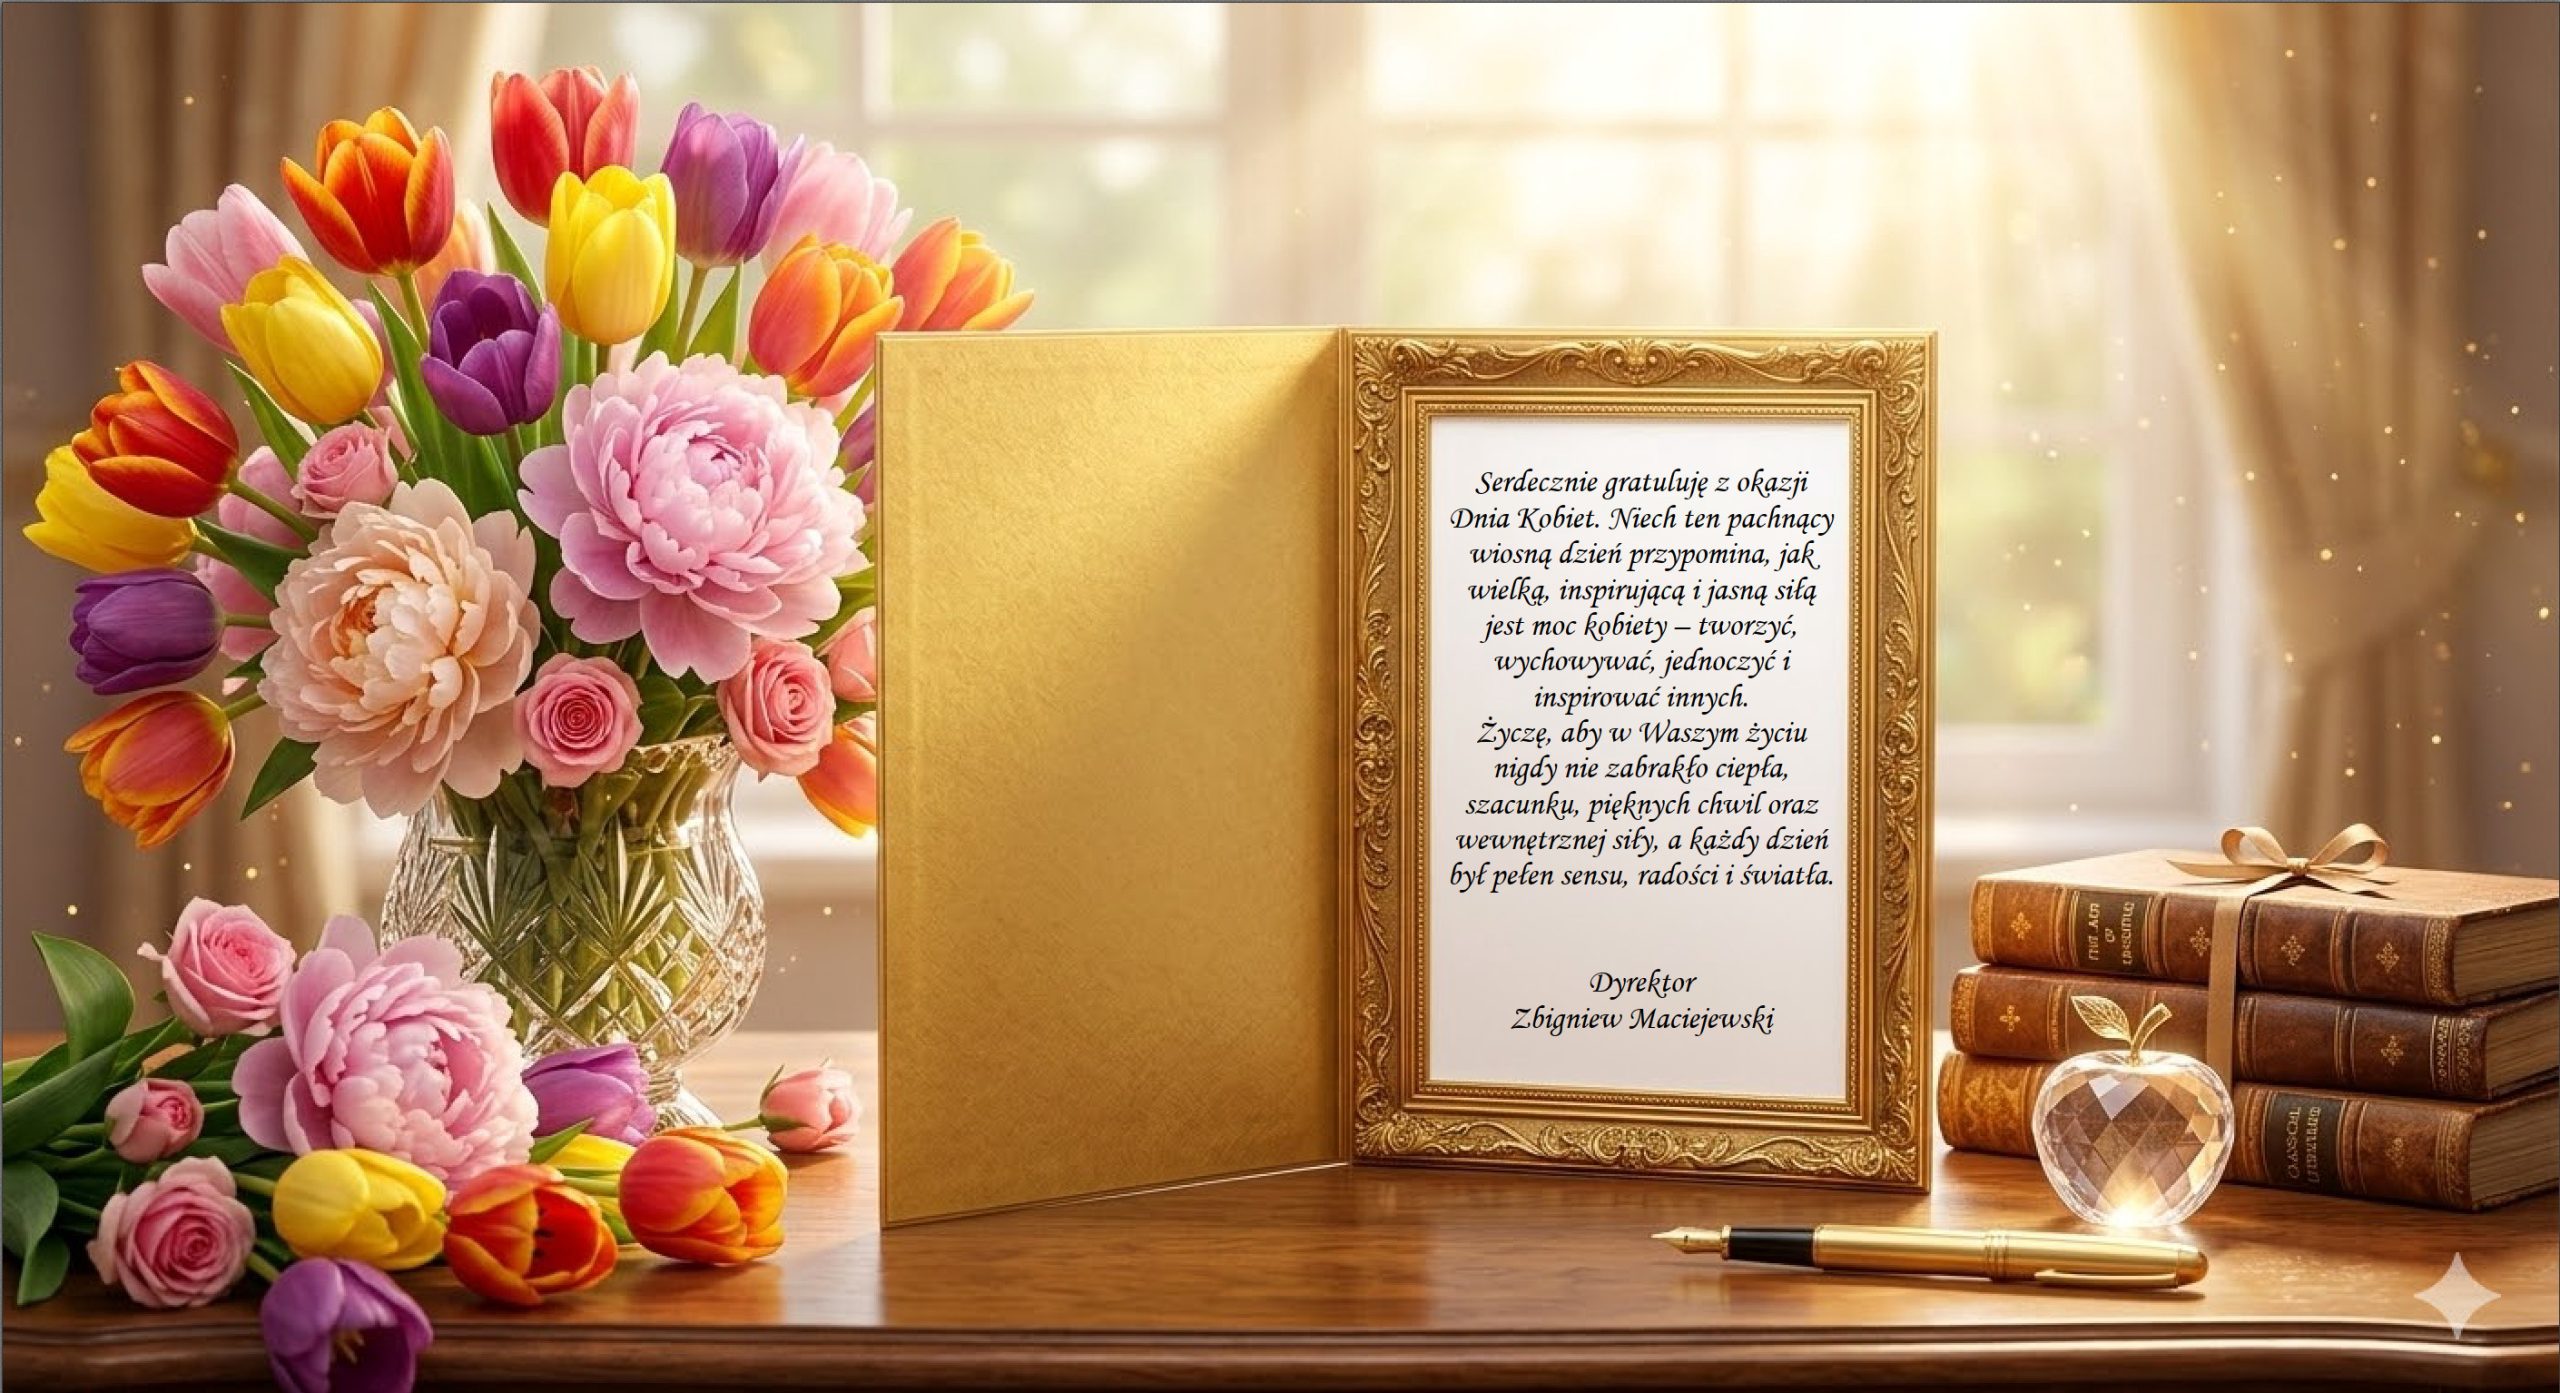 Serdecznie gratuluję z okazji
Dnia Kobiet. Niech ten pachnący
wiosną dzień przypomina, jak
wielką, inspirującą i jasną siłą
jest moc kobiety – tworzyć,
wychowywać, jednoczyć i
inspirować innych.
Życzę, aby w Waszym życiu
nigdy nie zabrakło ciepła,
szacunku, pięknych chwil oraz
wewnętrznej siły, a każdy dzień
był pełen sensu, radości i światła.
Dyrektor
Zbigniew Maciejewski